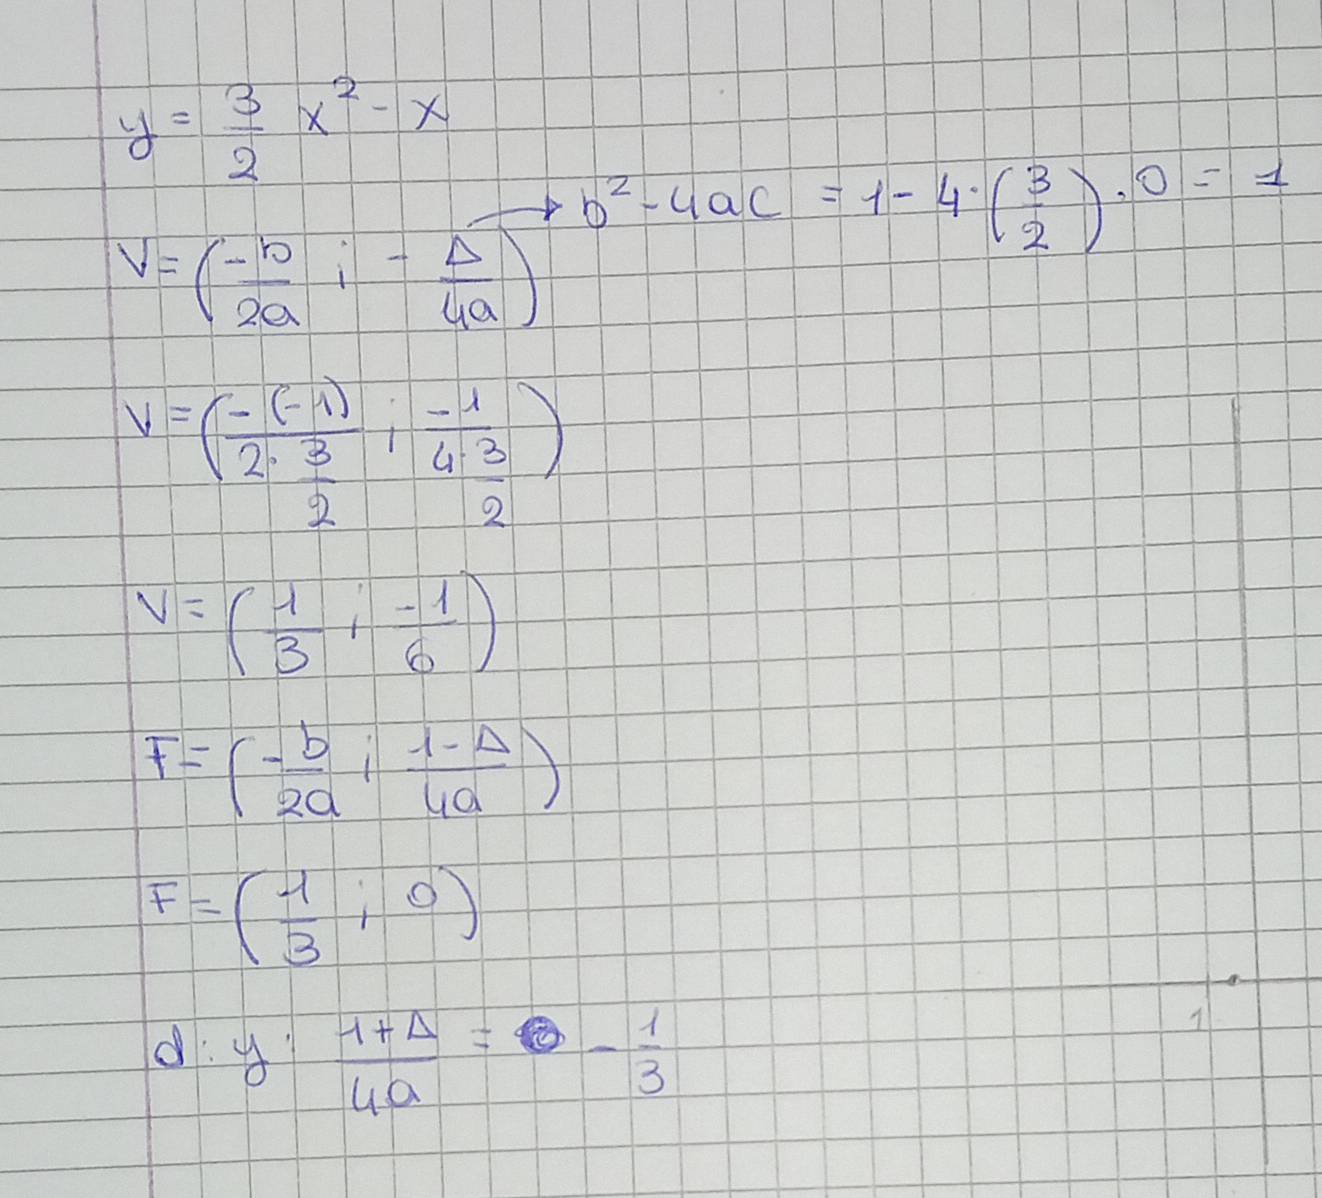 y = 3/2 x² - x
V = (-b/2a ; - Δ/4a) → b² - 4ac = 1 - 4·(3/2)·0 = 1
V = (-(-1)/2·3/2 ; -1/4·3/2)
V = (1/3 ; -1/6)
F = (-b/2a ; 1-Δ/4a)
F = (1/3 ; 0)
d: y: 1+Δ/4a = - 1/3
1